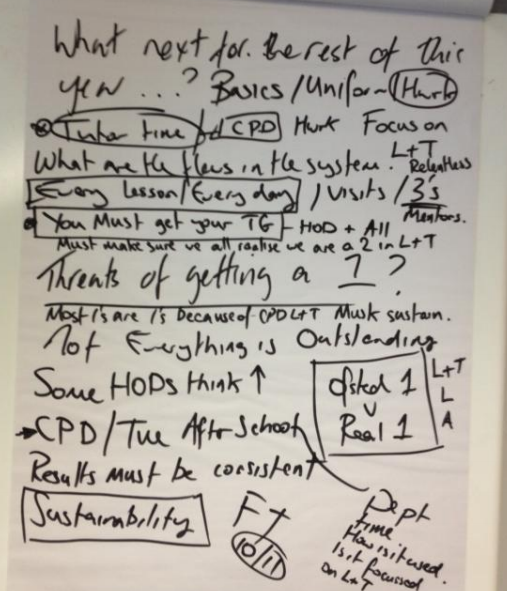 What next for the rest of this
year ...? Basics/Uniform Hwk
Tutor time / CPD Hwk Focus on
What are the flaws in the system. L+T
Relentless
Every Lesson/Every day / Visits / 3's
Mentors.
You Must get your TG - HOD + All
Must make sure we all realise we are a 2 in L+T
Threats of getting a 1?
Most 1's are 1's because of CPD L+T Must sustain.
Not Everything is Outstanding
Some HODs think ↑
Ofsted 1
v
Real 1
L+T
L
A
→ CPD/Tue After School
Results must be consistent
Sustainability
10/11
Dept
time
How is it used.
Is it focussed
on L+T